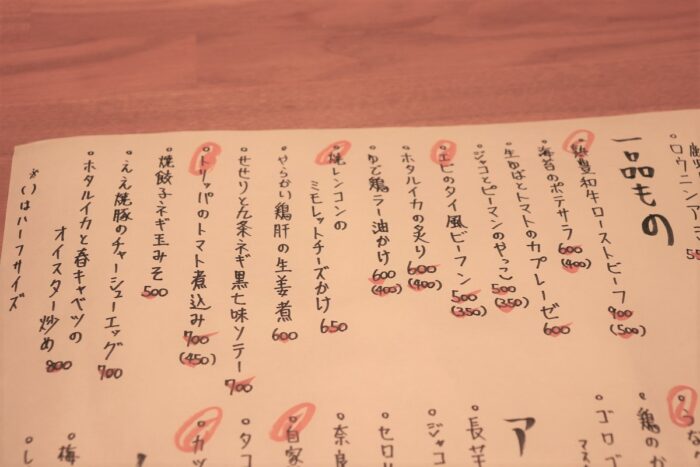 一品もの
豊和牛ローストビーフ 900 (500)
海苔のポテサラ 600 (400)
生ゆばとトマトのカプレーゼ 600
ジャコとピーマンのやっこ 500 (350)
エビのタイ風ビーフン 500 (350)
ホタルイカの炙り 600 (400)
ゆで鶏ラー油かけ 600 (400)
焼レンコンの
ミモレットチーズかけ 650
やらかい鶏肝の生姜煮 600
せせりと九条ネギ黒七味ソテー 700
トリッパのトマト煮込み 700 (450)
焼餃子ネギ玉みそ 500
ええ焼豚のチャーシューエッグ 700
ホタルイカと春キャベツの
オイスター炒め 800
※( )はハーフサイズ
鶏のか
ゴロゴ
マス
ア
長芋
ジャコ
セロリ
奈良
自家
タコ
カツ
梅
し